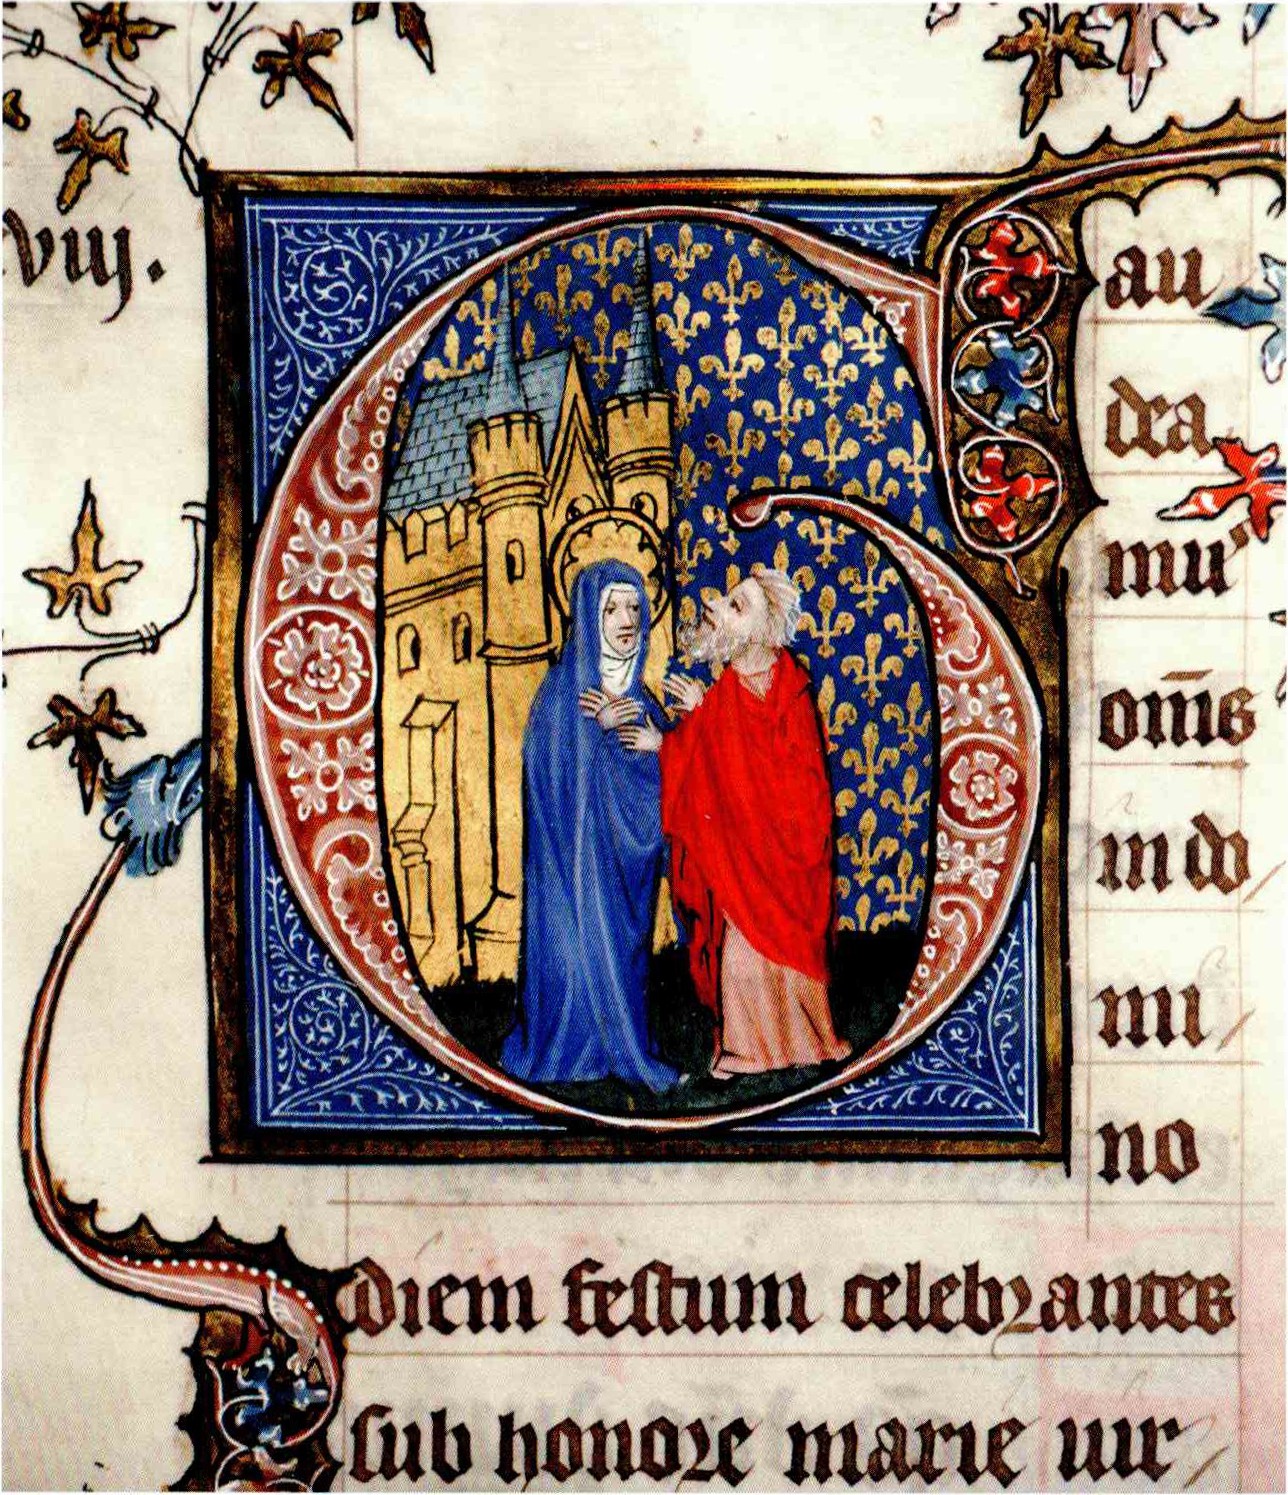 viij.
G
au
dea
mu᾽
om̄s
in do
mi
no
diem festum celebrantes
sub honore marie uir